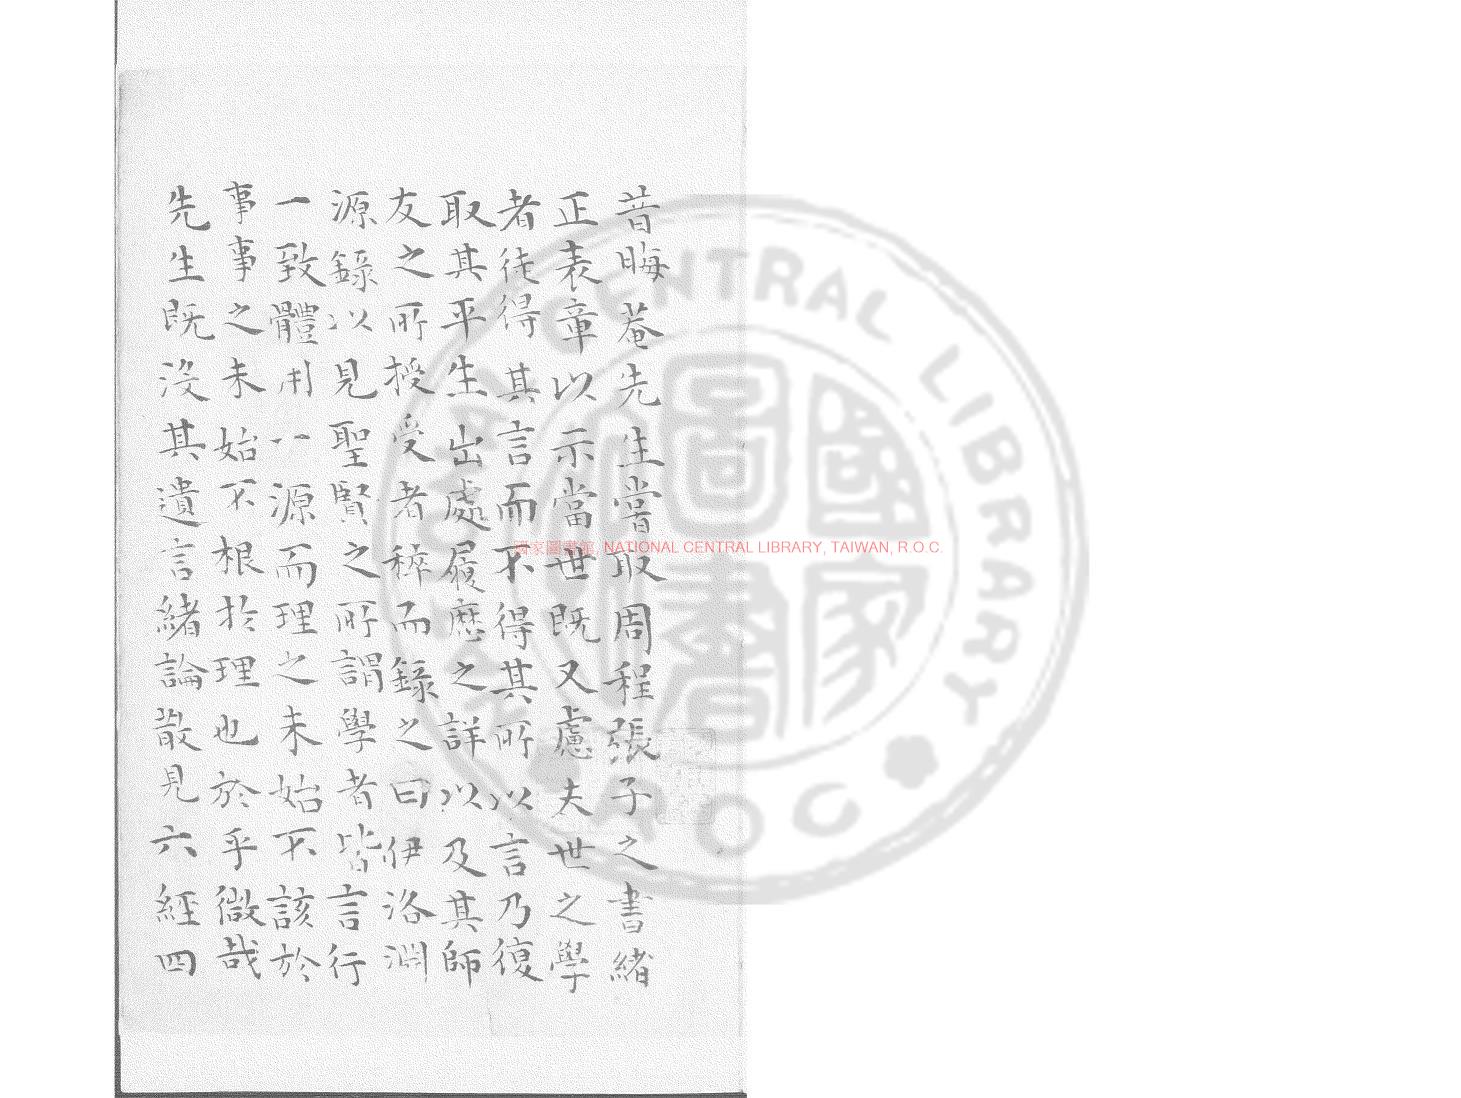 昔晦菴先生嘗取周程張子之書緒
正表章以示當世既又慮夫世之學
者徒得其言而不得其所以言乃復
取其平生出處履歷之詳以及其師
友之所授受者稡而錄之曰伊洛淵
源錄以見聖賢之所謂學者皆言行
一致體用一源而理之未始不該於
事事之未始不根於理也於乎微哉
先生既沒其遺言緒論散見六經四
國家圖書館, NATIONAL CENTRAL LIBRARY, TAIWAN, R.O.C.
NATIONAL CENTRAL LIBRARY
R.O.C.
國家圖書